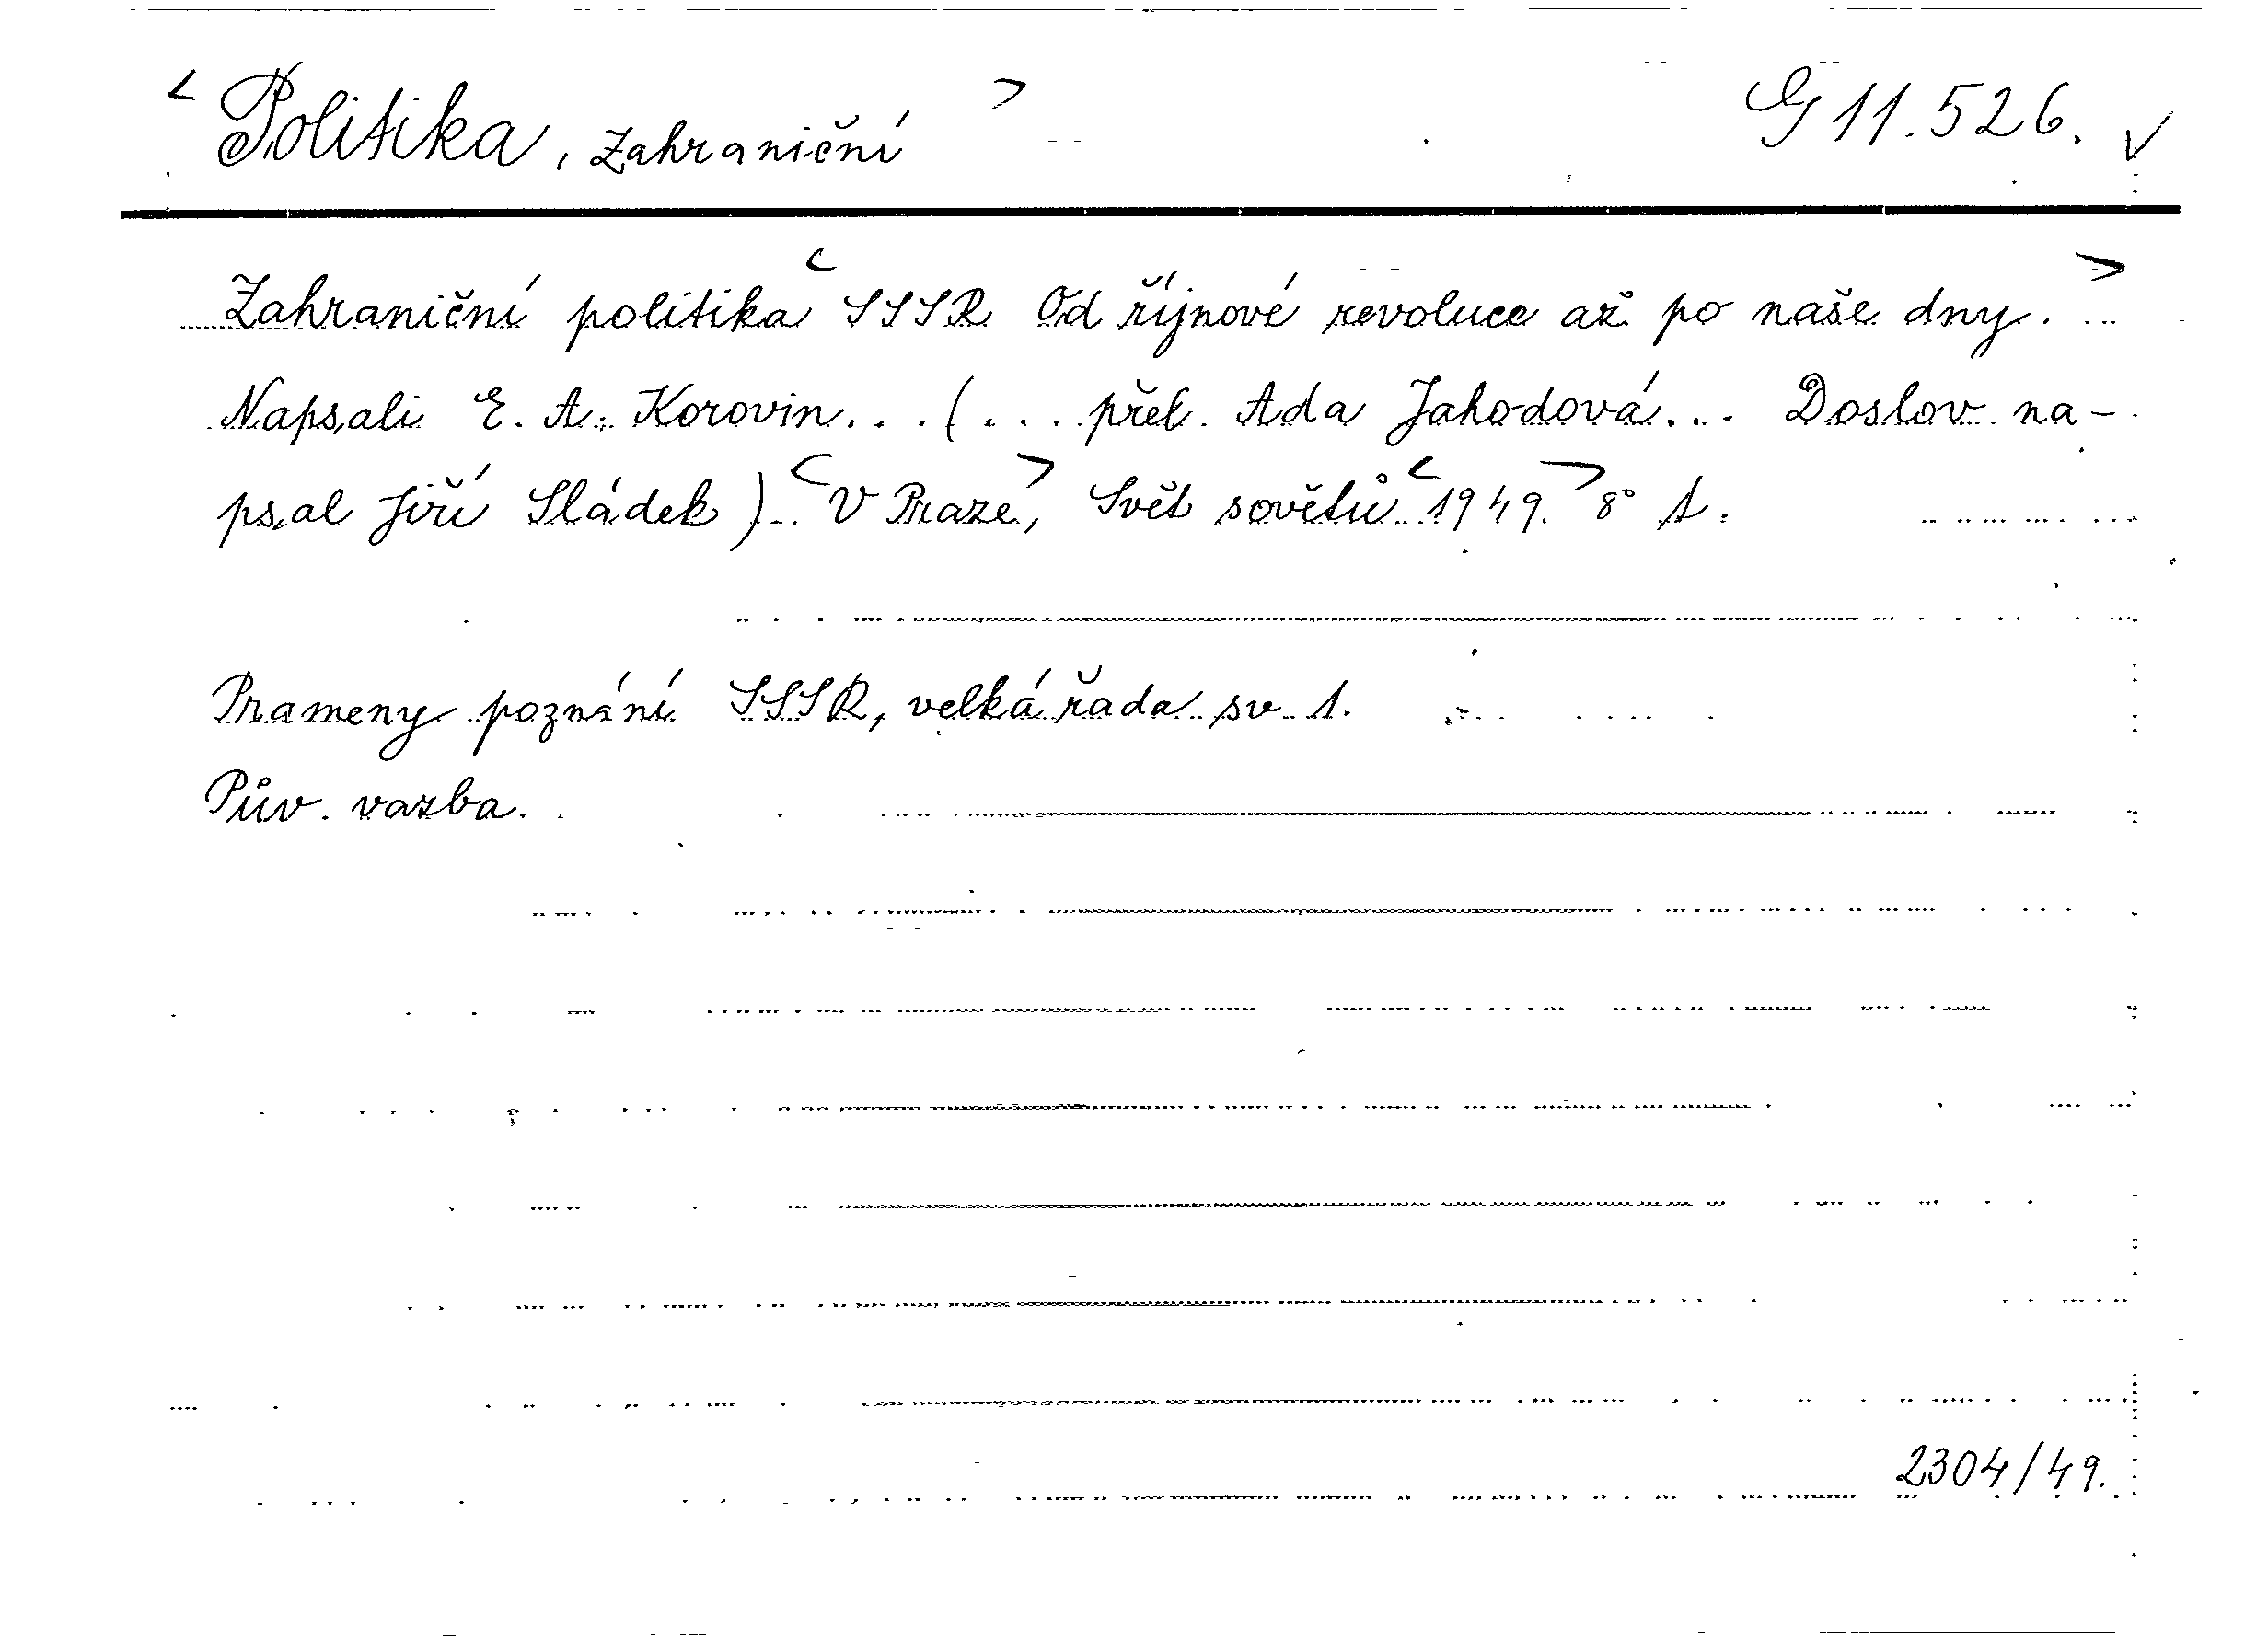 < Politika, zahraniční > G 11.526. √
Zahraniční politika < SSSR Od říjnové revoluce až po naše dny. >
Napsali E. A. Korovin... (... přel. Ada Jahodová... Doslov na-
psal Jiří Sládek). < V Praze >, Svět sovětů < 1949. > 8° 1.
Prameny poznání SSSR, velká řada sv. 1.
Pův. vazba.
2304/49.